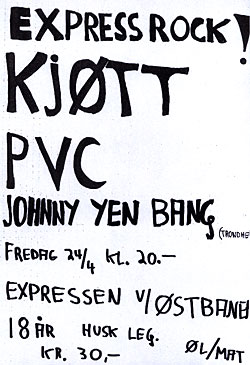 EXPRESS ROCK!
KJØTT
PVC
JOHNNY YEN BANG
(TRONDHE
FREDAG 24/4 KL. 20.—
EXPRESSEN V/ØSTBANEN
18 ÅR HUSK LEG.
KR. 30,— ØL/MAT